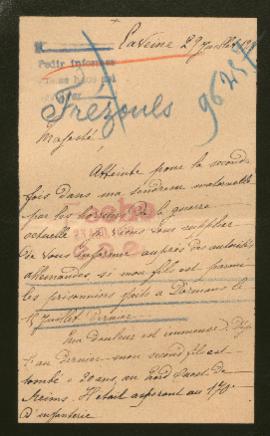 Laveine 29 Juillet
Pedir informes
Frézouls
9625
Majesté!
Atteinte pour la seconde
fois dans ma tendresse maternelle
par les horreurs de la guerre
actuelle, viens vous supplier
de vous informer auprès des autorités
allemandes si mon fils est parmi
les prisonniers faits à Dormans le
15 Juillet dernier.
Ma douleur est immense! Déjà
l'an dernier mon second fils est
tombé à 20 ans au nord Ouest de
Reims. Il était aspirant au 170e
d'infanterie